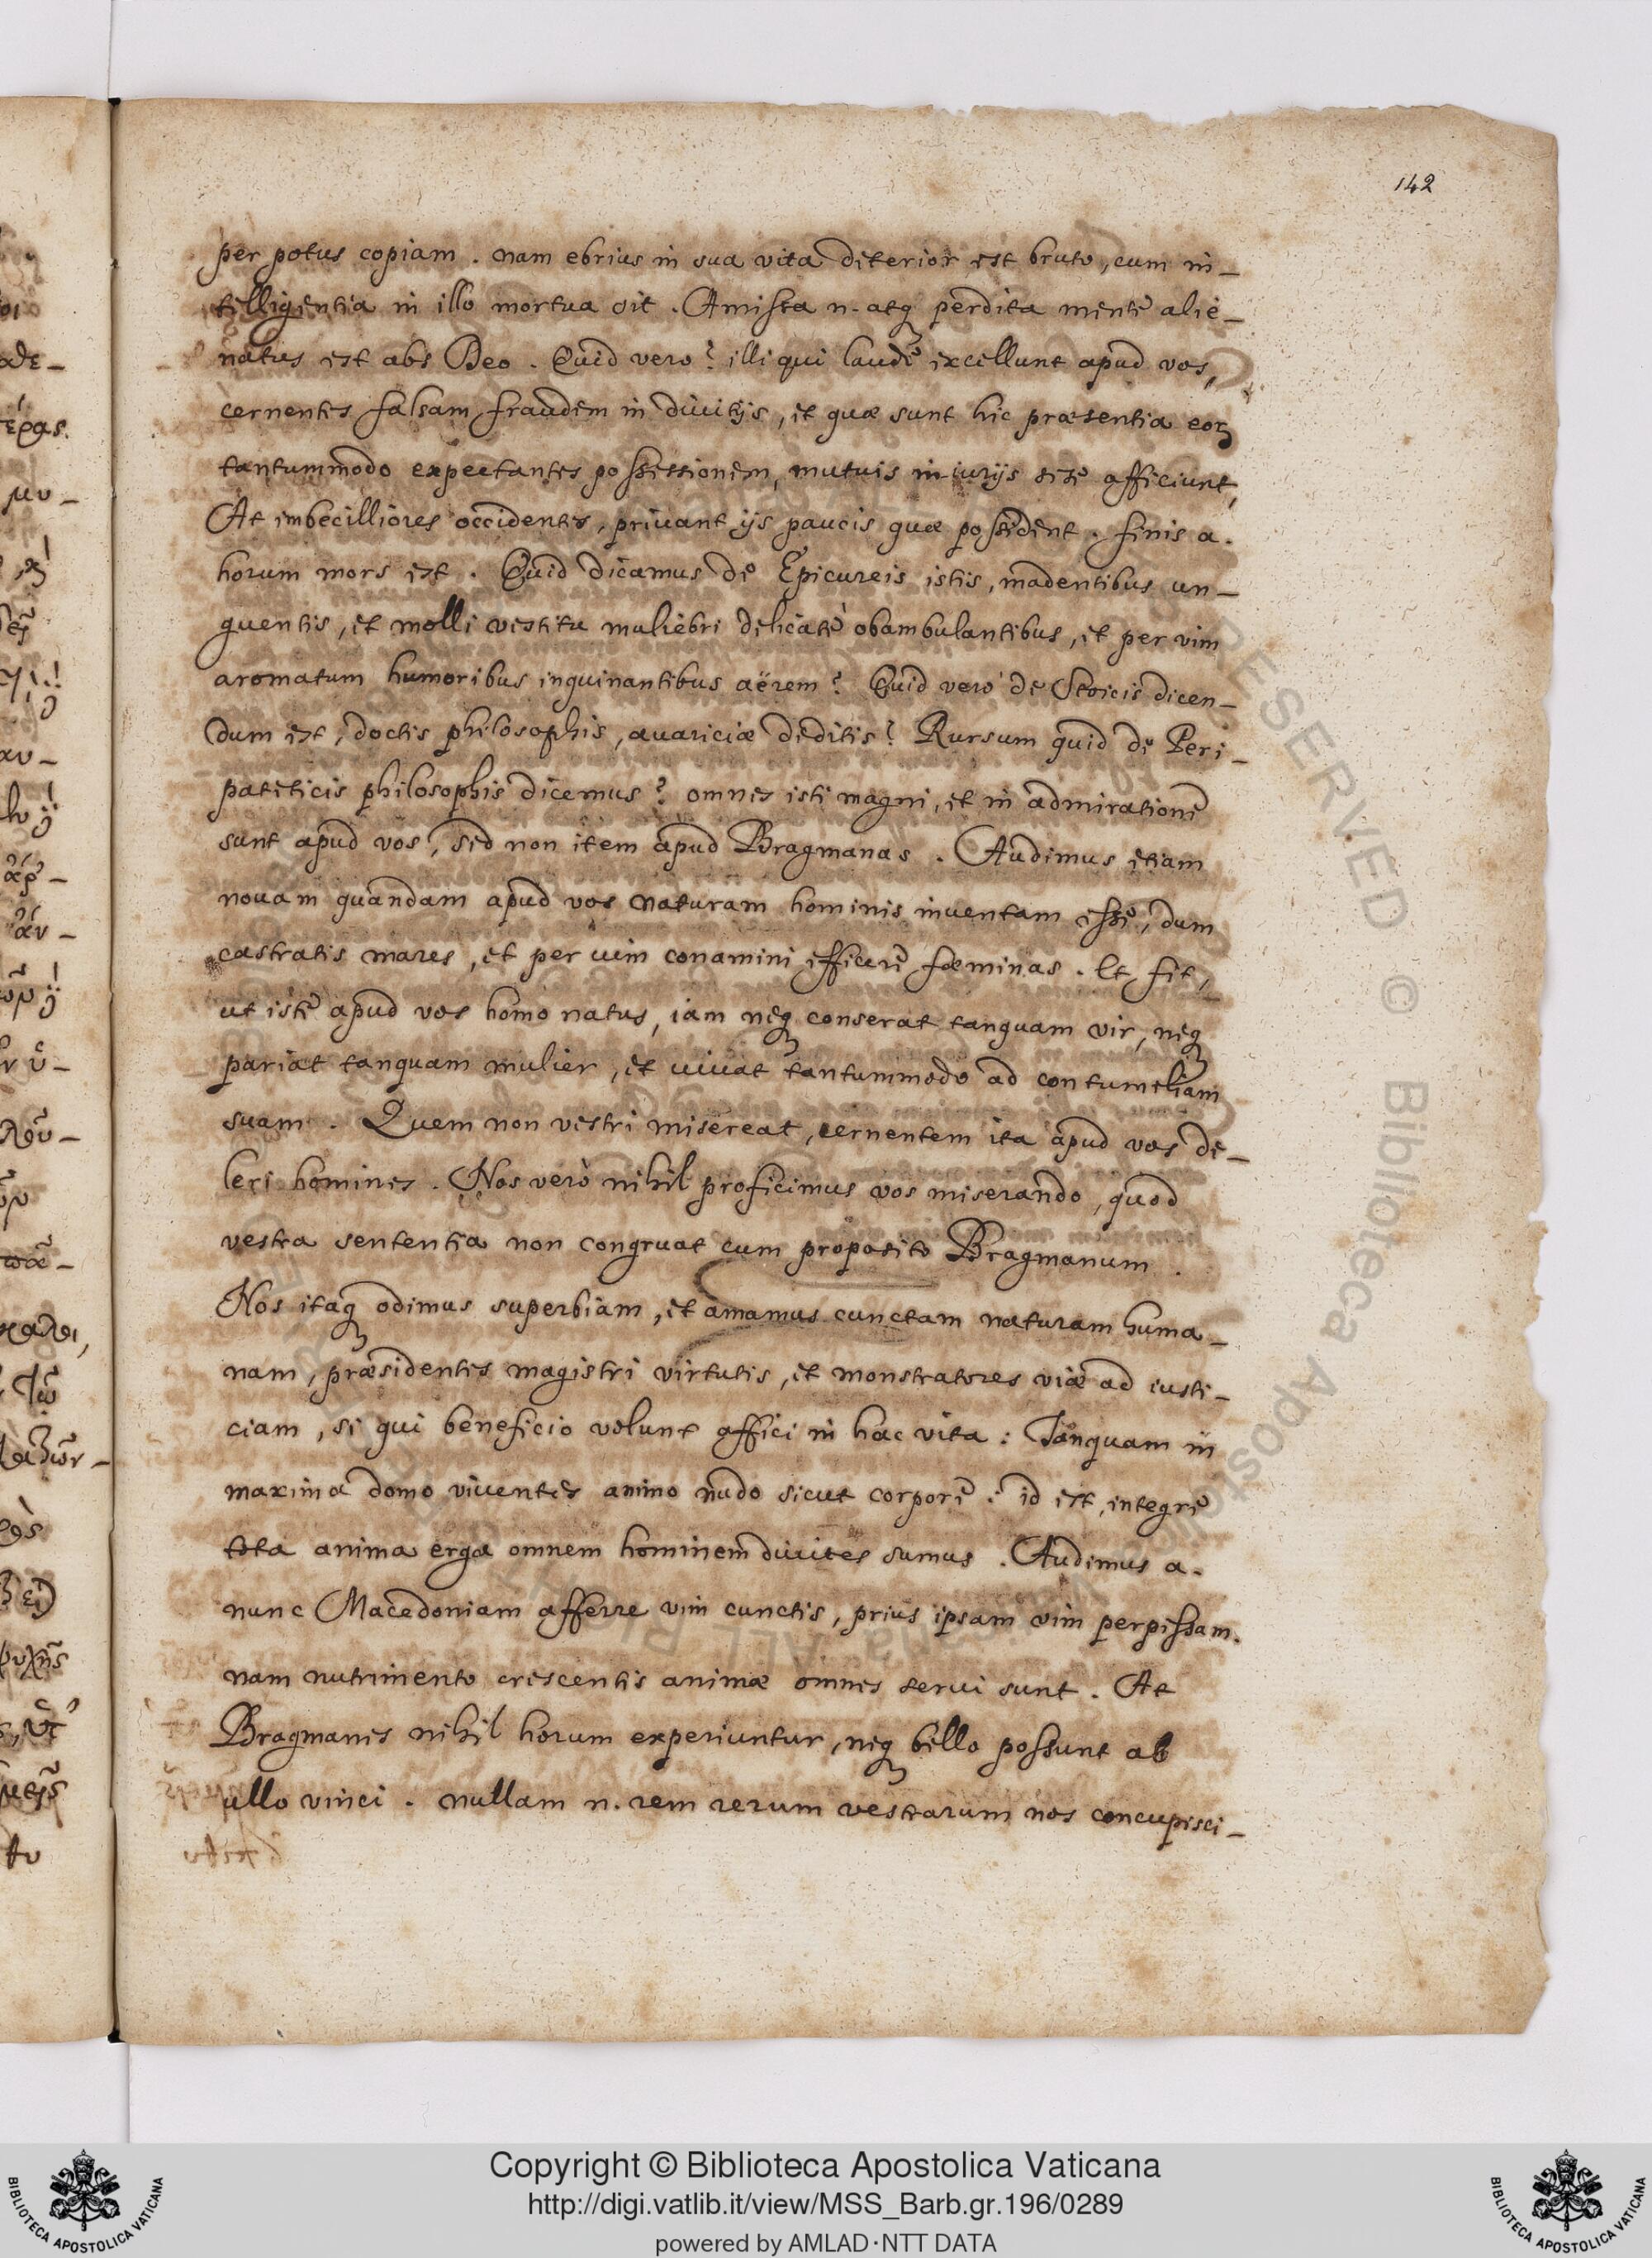 142
per potus copiam . nam ebrius in sua vita deterior est bruto, cum in-
telligentia in illo mortua sit . Amissa n. atq perdita mente alie-
natus est abs Deo . Quid vero? illi qui laude excellunt apud vos,
cernentes falsam fraudem in divitijs, et quæ sunt hic præsentia eorꝫ
tantummodo expectantes possessionem, mutuis iniurijs sese afficiunt,
At imbecilliores occidentes, privant ijs paucis quæ possident . finis a.
horum mors est . Quid dicamus de Epicureis istis, madentibus un-
guentis, et molli vestitu muliebri delicatè obambulantibus, et per vim
aromatum humoribus inquinantibus aërem? Quid vero de Stoicis dicen-
dum est, doctis philosophis, avariciæ deditis? Rursum quid de Peri-
pateticis philosophis dicemus? omnes isti magni, et in admiratione
sunt apud vos, sed non item apud Bragmanas . Audimus etiam
nouam quandam apud vos naturam hominis inuentam esse, dum
castratis mares, et per uim conamini efficere fœminas . Et fit,
ut iste apud vos homo natus, iam neq conserat tanquam vir, neq
pariat tanquam mulier, et uiuat tantummodo ad contumeliam
suam . Quem non vestri misereat, cernentem ita apud vos de-
leri homines . Nos verò nihil proficimus vos miserando, quod
vestra sententia non congruat cum proposito Bragmanum .
Nos itaq odimus superbiam, et amamus cunctam naturam huma-
nam, præsidentes magistri virtutis, et monstratores viæ ad iusti-
ciam, si qui beneficio volunt affici in hac vita : Tanquam in
maxima domo viventes animo nudo sicut corpore : id est, integre
tota anima erga omnem hominem divites sumus . Audimus a.
nunc Macedoniam afferre vim cunctis, prius ipsam vim perpessam.
nam nutrimento crescentis animæ omnes serui sunt . At
Bragmanes nihil horum experiuntur, neq bello possunt ab
ullo vinci . nullam n. rem rerum vestrarum nos concupisci-
Copyright © Biblioteca Apostolica Vaticana
http://digi.vatlib.it/view/MSS_Barb.gr.196/0289
powered by AMLAD·NTT DATA
BIBLIOTECA APOSTOLICA VATICANA
BIBLIOTECA APOSTOLICA VATICANA